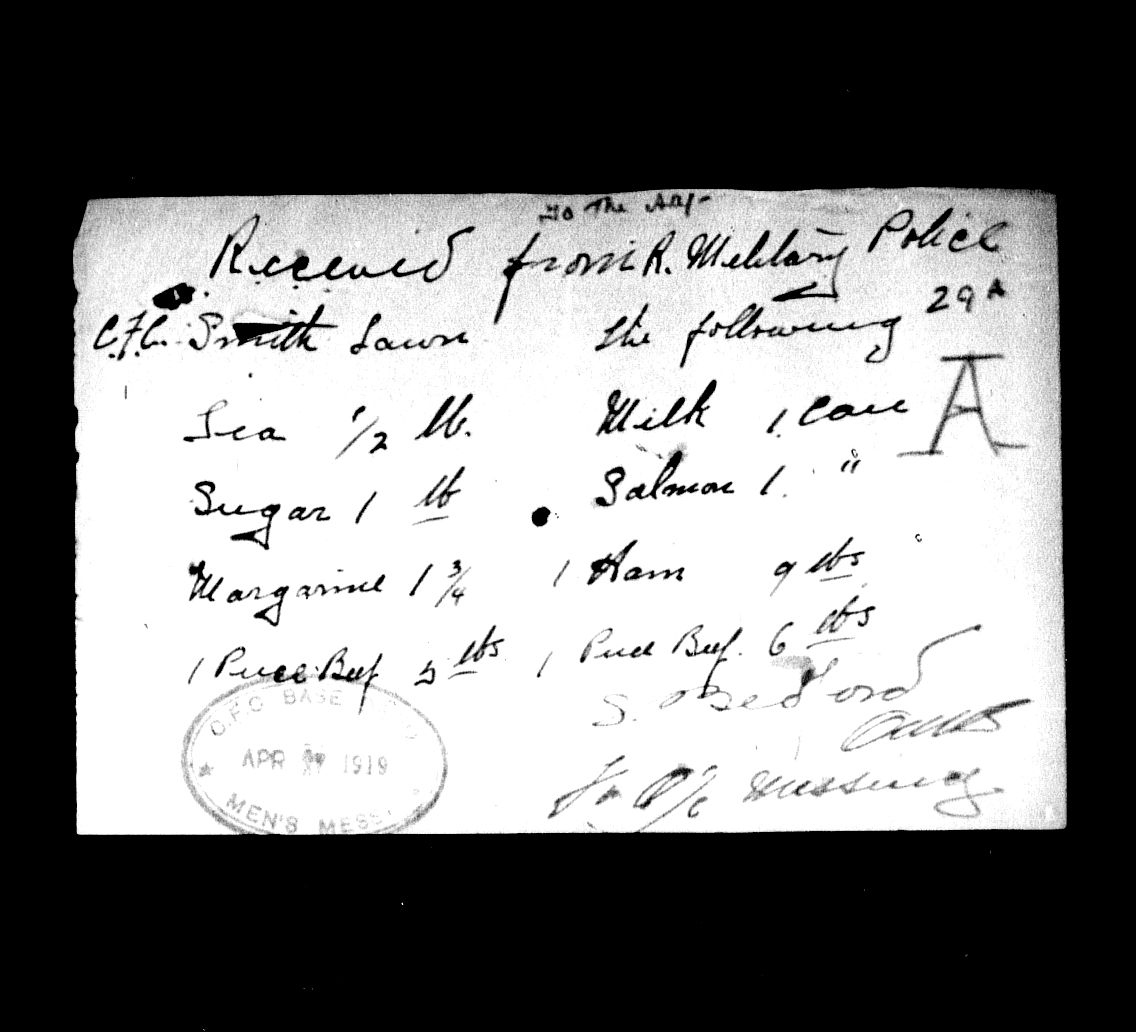 To The Adj-
Received from R. Military Police
C.F.C. Smith Lawn the following 29A
A
Tea 1/2 lb. Milk 1. Can
Sugar 1 lb Salmon 1. "
Margarine 1 3/4 1 Ham 9 lbs
1 Piece Beef 5 lbs 1 Piece Beef. 6 lbs
S. Bedford
I/C Messing
C.F.C BASE
APR 1919
MEN'S MESS